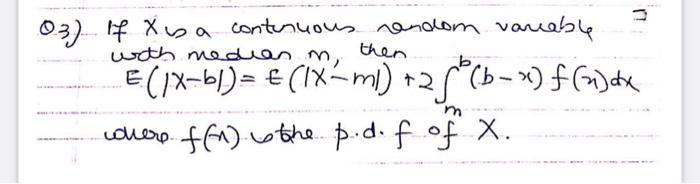 Q3) If X is a continuous random variable
with median m, then
E(|X-b|) = E(|X-m|) + 2∫ₘᵇ(b-x) f(x)dx
where f(x) is the p.d.f of X.